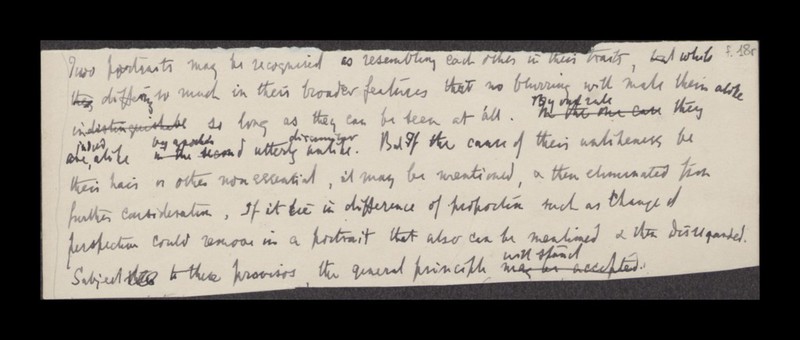 f. 18r
Two portraits may be recognised as resembling each other in their traits, but while
they differing so much in their broader features that no blurring will make them alike
indistinguishable so long as they can be seen at all. By one rule In the one case they
are, judged alike by another in the second utterly dissimilar unlike. But If the cause of their unlikeness be
their hair or other non essential, it may be mentioned, & then eliminated from
further consideration, If it lie in difference of proportion such as Change of
perspective could remove in a portrait that also can be mentioned & then disregarded.
Subject to these provisos, the general principle will stand may be accepted.